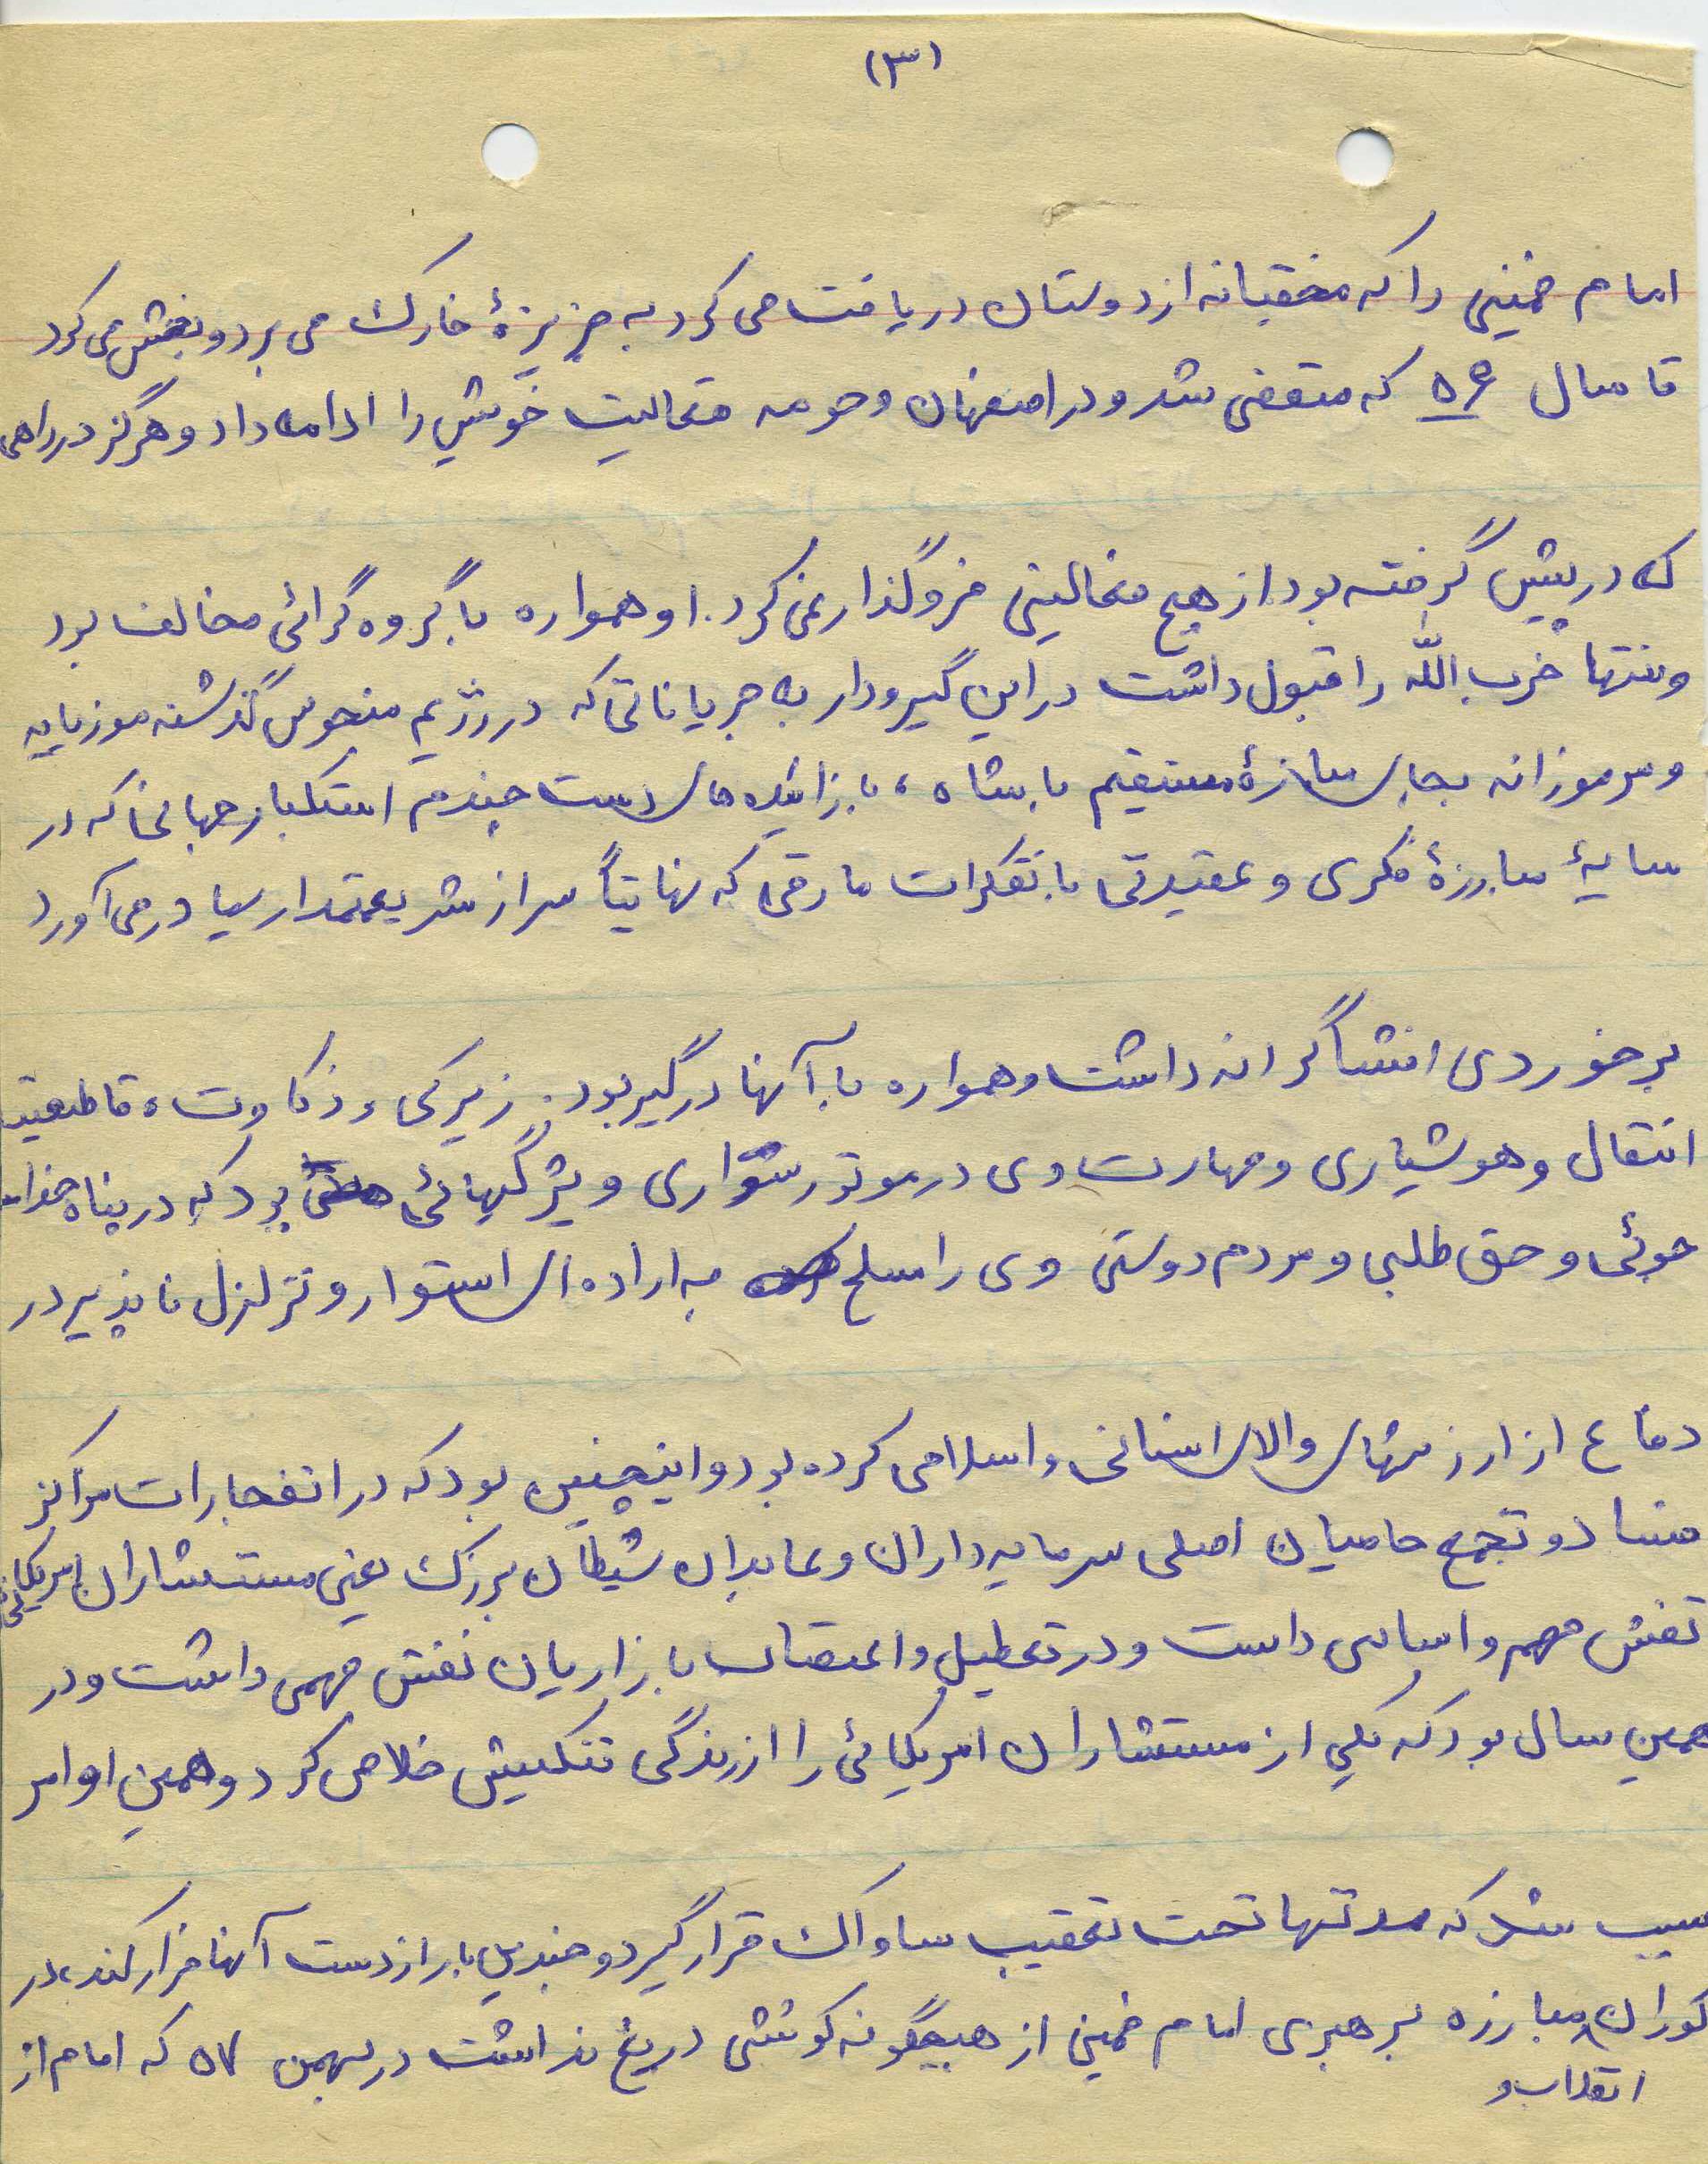 (۳)
امام خمینی را که مخفیانه از دوستان دریافت می کرد به جزیزهٔ خارک می برد و پخش می کرد
تا سال ۵۶ که متقضی شد و در اصفهان و حومه فعالیت خویش را ادامه داد و هرگز در راهی
که در پیش گرفته بود از هیچ فعالیتی فروگذار نمی کرد. او همواره با گروه گرائی مخالف بود
و تنها حزب الله را قبول داشت در این گیرودار به جریاناتی که در رژیم منحوس گذشته موزیانه
و مرموزانه بجای مبارزهٔ مستقیم با شاه، با زائیده های دست چندم استکبار جهانی که در
سایهٔ مبارزهٔ فکری و عقیدتی با تفکرات مارقی که نهایتاً سر از شریعتمدار سیا در می آورد
برخوردی افشاگرانه داشت و همواره با آنها درگیر بود. زیرکی و ذکاوت، قاطعیت
انتقال و هوشیاری و مهارت وی در موتور سواری ویژگیهائی بود که در پناه خدا
جوئی و حق طلبی و مردم دوستی وی را مسلح به اراده ای استوار و تزلزل ناپذیر در
دفاع از ارزشهای والای انسانی و اسلامی کرده بود و اینچنین بود که در انفجارات مراکز
فساد و تجمع حامیان اصلی سرمایه داران و عابدان شیطان بزرگ یعنی مستشاران امریکائی
نقش مهم و اساسی داست و در تعطیل و اعتصاب بازاریان نقش مهمی داشت و در
همین سال بود که یکی از مستشاران امریکائی را از زندگی ننگینش خلاص کرد و همین اوامر
سبب شد که مدتها تحت تعقیب ساواک قرار گیرد و چندین بار از دست آنها فرار کند، در
کوران انقلاب و مبارزه برهبری امام خمینی از هیچگونه کوششی دریغ نداشت در بهمن ۵۷ که امام از